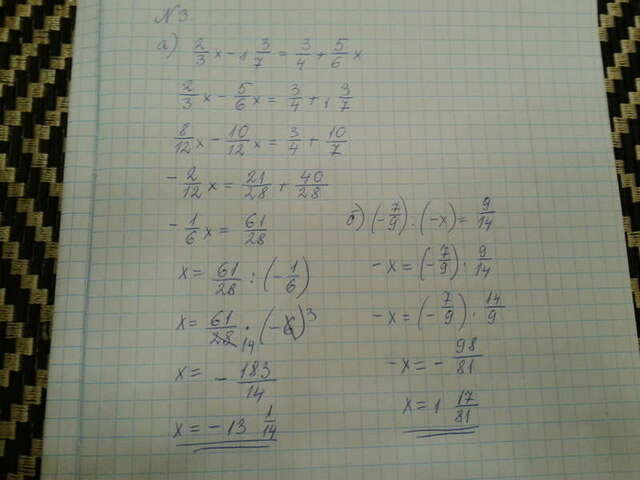 №3
а) 2/3 x - 1 3/7 = 3/4 + 5/6 x
2/3 x - 5/6 x = 3/4 + 1 3/7
8/12 x - 10/12 x = 3/4 + 10/7
- 2/12 x = 21/28 + 40/28
- 1/6 x = 61/28
x = 61/28 : (- 1/6)
x = 61/28 14 · (- 6) 3
x = - 183/14
x = - 13 1/14
б) (- 7/9) : (-x) = 9/14
-x = (- 7/9) : 9/14
-x = (- 7/9) · 14/9
-x = - 98/81
x = 1 17/81